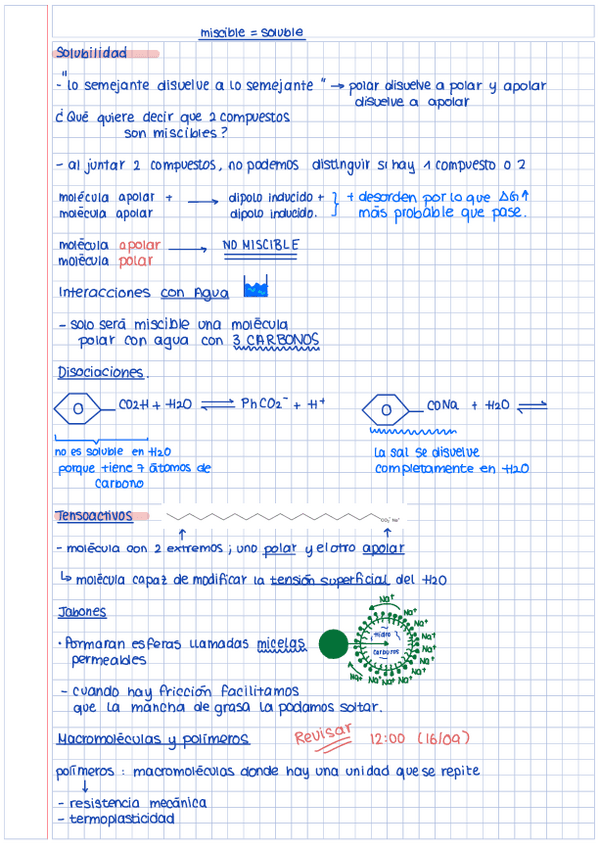 miscible = soluble
Solubilidad
- "lo semejante disuelve a lo semejante" → polar disuelve a polar y apolar
disuelve a apolar
¿Qué quiere decir que 2 compuestos
son miscibles?
- al juntar 2 compuestos, no podemos distinguir si hay 1 compuesto o 2
molécula apolar + → dipolo inducido + } + desorden por lo que ΔG↑
molécula apolar dipolo inducido. más probable que pase.
molécula apolar → NO MISCIBLE
molécula polar
Interacciones con Agua
- solo será miscible una molécula
polar con agua con 3 CARBONOS
Disociaciones.
CO2H + H2O ⇌ PhCO2⁻ + H⁺ CONa + H2O ⇌
no es soluble en H2O
porque tiene 7 átomos de
carbono
la sal se disuelve
completamente en H2O
Tensoactivos
CO₂⁻ Na⁺
- molécula con 2 extremos; uno polar y el otro apolar
↳ molécula capaz de modificar la tensión superficial del H2O
Jabones
· Formaran esferas llamadas micelas
permeables
Na⁺ Na⁺ Na⁺ Na⁺ Na⁺ Na⁺ Na⁺ Na⁺ Na⁺ Na⁺ Na⁺
Hidro
carburos
- cuando hay fricción facilitamos
que la mancha de grasa la podamos soltar.
Macromoléculas y polímeros Revisar 12:00 (16/09)
polímeros : macromoléculas donde hay una unidad que se repite
↓
- resistencia mecánica
- termoplasticidad